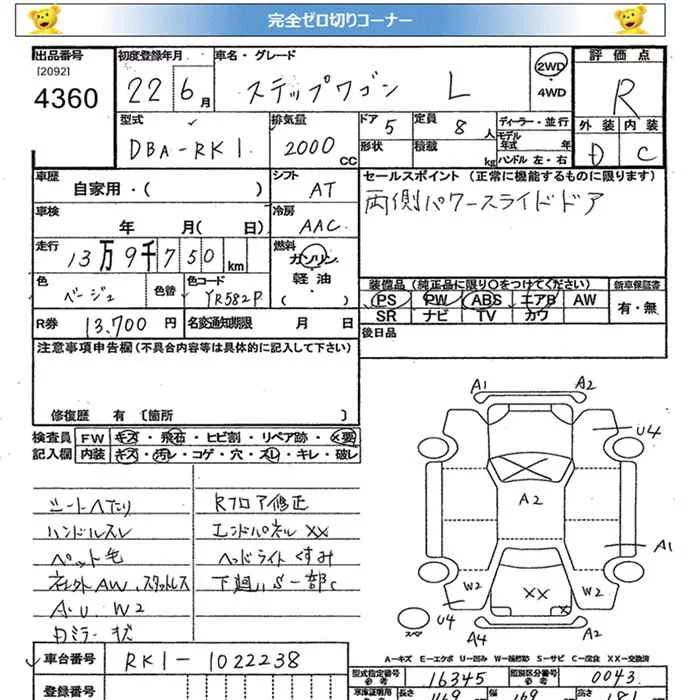 完全ゼロ切りコーナー
出品番号
[2092]
4360
初度登録年月
22 6月
車名・グレード
ステップワゴン L
2WD
4WD
評価点
R
外装 内装
D C
型式
DBA-RK1
排気量
2000 CC
ドア
5
形状
定員
8人
積載
kg
ディーラー・並行
モデル年式 年
ハンドル 左・右
車歴
自家用・( )
シフト
AT
セールスポイント (正常に機能するものに限ります)
両側パワースライドドア
車検
年 月( 日)
冷房
AAC
走行
13万9千750km
燃料
ガソリン
軽油
( )
色
ベージュ
色替
色コード
YR582P
装備品 (純正品に限り〇をつけてください)
PS PW ABS エアB AW
SR ナビ TV カワ
新車保証書
有・無
R券
13,700円
名変通知期限 月 日
後日品
注意事項申告欄(不具合内容等は具体的に記入して下さい)
修復歴 有 〔箇所 〕
検査員記入欄
FW キズ・飛石・ヒビ割・リペア跡・×要
内装 キズ・汚レ・コゲ・穴・スレ・キレ・破レ
シートヘタリ
ハンドルスレ
ペット毛
社外AW、スタットレス
A.U W2
Rフロア修正
エンドパネルXX
ヘッドライトくすみ
下廻りS一部C
A1 A2
U4
A2
A1
W2 XX W2
X
U4
スペア
A4 A2
A-キズ E-エクボ U-凹み W-補修跡 S-サビ C-腐食 XX-交換済
車台番号
RK1-1022238
登録番号
型式指定番号
参考
16345
類別区分番号
参考
0043
長さ
469
幅
169
高さ
181